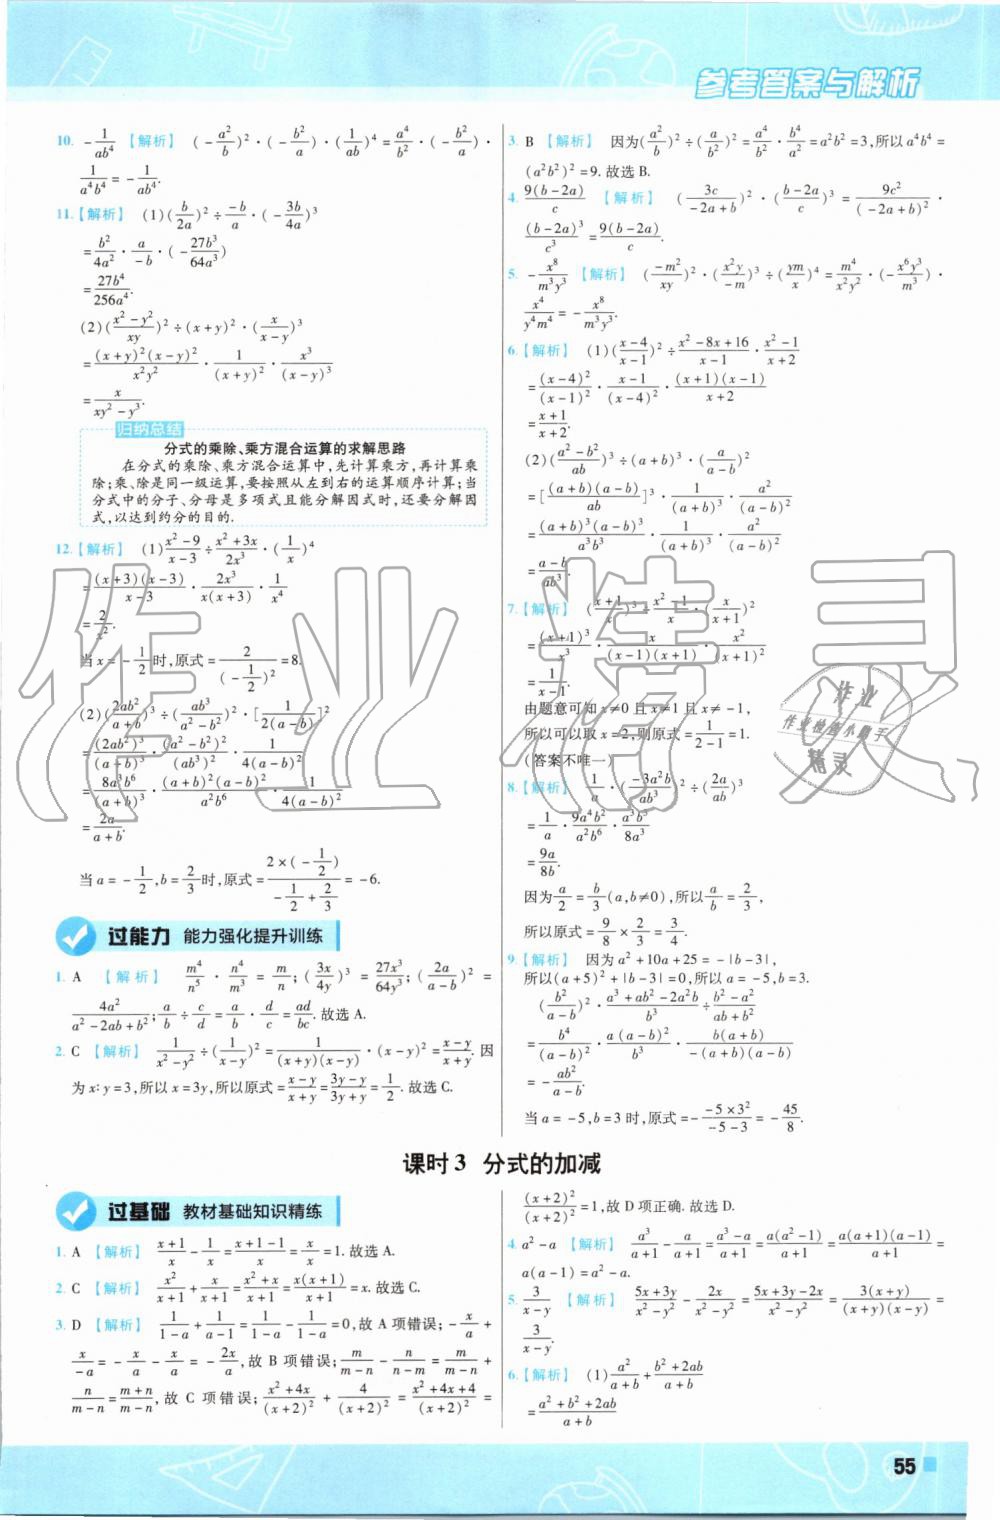 参考答案与解析
10. -1/(ab⁴) 【解析】 (-a²/b)²·(-b²/a)·(1/(ab))⁴=a⁴/b²·(-b²/a)·
1/(a⁴b⁴)=-1/(ab⁴).
11.【解析】 (1)(b/(2a))²÷(-b)/a·(-3b/(4a))³
=b²/(4a²)·a/(-b)·(-27b³/(64a³))
=27b⁴/(256a⁴).
(2)((x²-y²)/(xy))²÷(x+y)²·(x/(x-y))³
=(x+y)²(x-y)²/(x²y²)·1/(x+y)²·x³/(x-y)³
=x/(xy²-y³).
归纳总结
分式的乘除、乘方混合运算的求解思路
在分式的乘除、乘方混合运算中,先计算乘方,再计算乘
除;乘、除是同一级运算,要按照从左到右的运算顺序计算;当
分式中的分子、分母是多项式且能分解因式时,还要分解因
式,以达到约分的目的.
12.【解析】 (1)(x²-9)/(x-3)÷(x²+3x)/(2x³)·(1/x)⁴
=(x+3)(x-3)/(x-3)·2x³/(x(x+3))·1/x⁴
=2/x².
当x=-1/2时,原式=2/(-1/2)²=8.
(2)(2ab²/(a+b))³÷(ab³/(a²-b²))²·[1/(2(a-b))]²
=(2ab²)³/(a+b)³·(a²-b²)²/(ab³)²·1/(4(a-b)²)
=8a³b⁶/(a+b)³·(a+b)²(a-b)²/(a²b⁶)·1/(4(a-b)²)
=2a/(a+b).
当a=-1/2,b=2/3时,原式=(2×(-1/2))/(-1/2+2/3)=-6.
过能力 能力强化提升训练
1. A 【解析】 m⁴/n⁵·n⁴/m³=m/n;(3x/(4y))³=27x³/(64y³);(2a/(a-b))²=
4a²/(a²-2ab+b²);a/b÷c/d=a/b·d/c=ad/(bc).故选A.
2. C 【解析】 1/(x²-y²)÷(1/(x-y))²=1/((x+y)(x-y))·(x-y)²=(x-y)/(x+y).因
为x∶y=3,所以x=3y,所以原式=(x-y)/(x+y)=(3y-y)/(3y+y)=1/2.故选C.
3. B 【解析】 因为(a²/b)²÷(a/b²)²=a⁴/b²·b⁴/a²=a²b²=3,所以a⁴b⁴=
(a²b²)²=9.故选B.
4. 9(b-2a)/c 【解析】 (3c/(-2a+b))²·((b-2a)/c)³=9c²/(-2a+b)²·
(b-2a)³/c³=9(b-2a)/c.
5. -x⁸/(m³y³) 【解析】 (-m²/(xy))²·(x²y/(-m))³÷(ym/x)⁴=m⁴/(x²y²)·(-x⁶y³/m³)·
x⁴/(y⁴m⁴)=-x⁸/(m³y³).
6.【解析】 (1)((x-4)/(x-1))²÷(x²-8x+16)/(x-1)·(x²-1)/(x+2)
=(x-4)²/(x-1)²·(x-1)/(x-4)²·(x+1)(x-1)/(x+2)
=(x+1)/(x+2).
(2)((a²-b²)/(ab))³÷(a+b)³·(a/(a-b))²
=[(a+b)(a-b)/(ab)]³·1/(a+b)³·a²/(a-b)²
=(a+b)³(a-b)³/(a³b³)·1/(a+b)³·a²/(a-b)²
=(a-b)/(ab³).
7.【解析】 ((x+1)/x)³÷(x²-1)/x·(x/(x+1))²
=(x+1)³/x³·x/((x-1)(x+1))·x²/(x+1)²
=1/(x-1).
由题意可知x≠0且x≠1且x≠-1,
所以可以取x=2,则原式=1/(2-1)=1.
(答案不唯一)
8.【解析】 1/a·(-3a²b/(ab³))²÷(2a/(ab))³
=1/a·9a⁴b²/(a²b⁶)·a³b³/(8a³)
=9a/(8b).
因为a/2=b/3(a,b≠0),所以a/b=2/3,
所以原式=9/8×2/3=3/4.
9.【解析】 因为a²+10a+25=-|b-3|,
所以(a+5)²+|b-3|=0,所以a=-5,b=3.
(b²/(a-b))²·(a³+ab²-2a²b)/b³÷(b²-a²)/(ab+b²)
=b⁴/(a-b)²·a(a-b)²/b³·b(a+b)/(-(a+b)(a-b))
=-ab²/(a-b).
当a=-5,b=3时,原式=-(-5×3²)/(-5-3)=-45/8.
课时3 分式的加减
过基础 教材基础知识精练
1. A 【解析】 (x+1)/x-1/x=(x+1-1)/x=x/x=1.故选A.
2. C 【解析】 x²/(x+1)+x/(x+1)=(x²+x)/(x+1)=x(x+1)/(x+1)=x.故选C.
3. D 【解析】 1/(1-a)+1/(a-1)=1/(1-a)-1/(1-a)=0,故A项错误;-x/a+
x/(-a)=-x/a-x/a=-2x/a,故B项错误;m/(m-n)-n/(n-m)=m/(m-n)+
n/(m-n)=(m+n)/(m-n),故C项错误;(x²+4x)/(x+2)²+4/(x+2)²=(x²+4x+4)/(x+2)²=
(x+2)²/(x+2)²=1,故D项正确.故选D.
4. a²-a 【解析】 a³/(a+1)-a/(a+1)=(a³-a)/(a+1)=a(a²-1)/(a+1)=a(a+1)(a-1)/(a+1)=
a(a-1)=a²-a.
5. 3/(x-y) 【解析】 (5x+3y)/(x²-y²)-2x/(x²-y²)=(5x+3y-2x)/(x²-y²)=3(x+y)/((x+y)(x-y))=
3/(x-y).
6.【解析】 (1)a²/(a+b)+(b²+2ab)/(a+b)
=(a²+b²+2ab)/(a+b)
55
作业精灵
作业
作业检查小助手
精灵